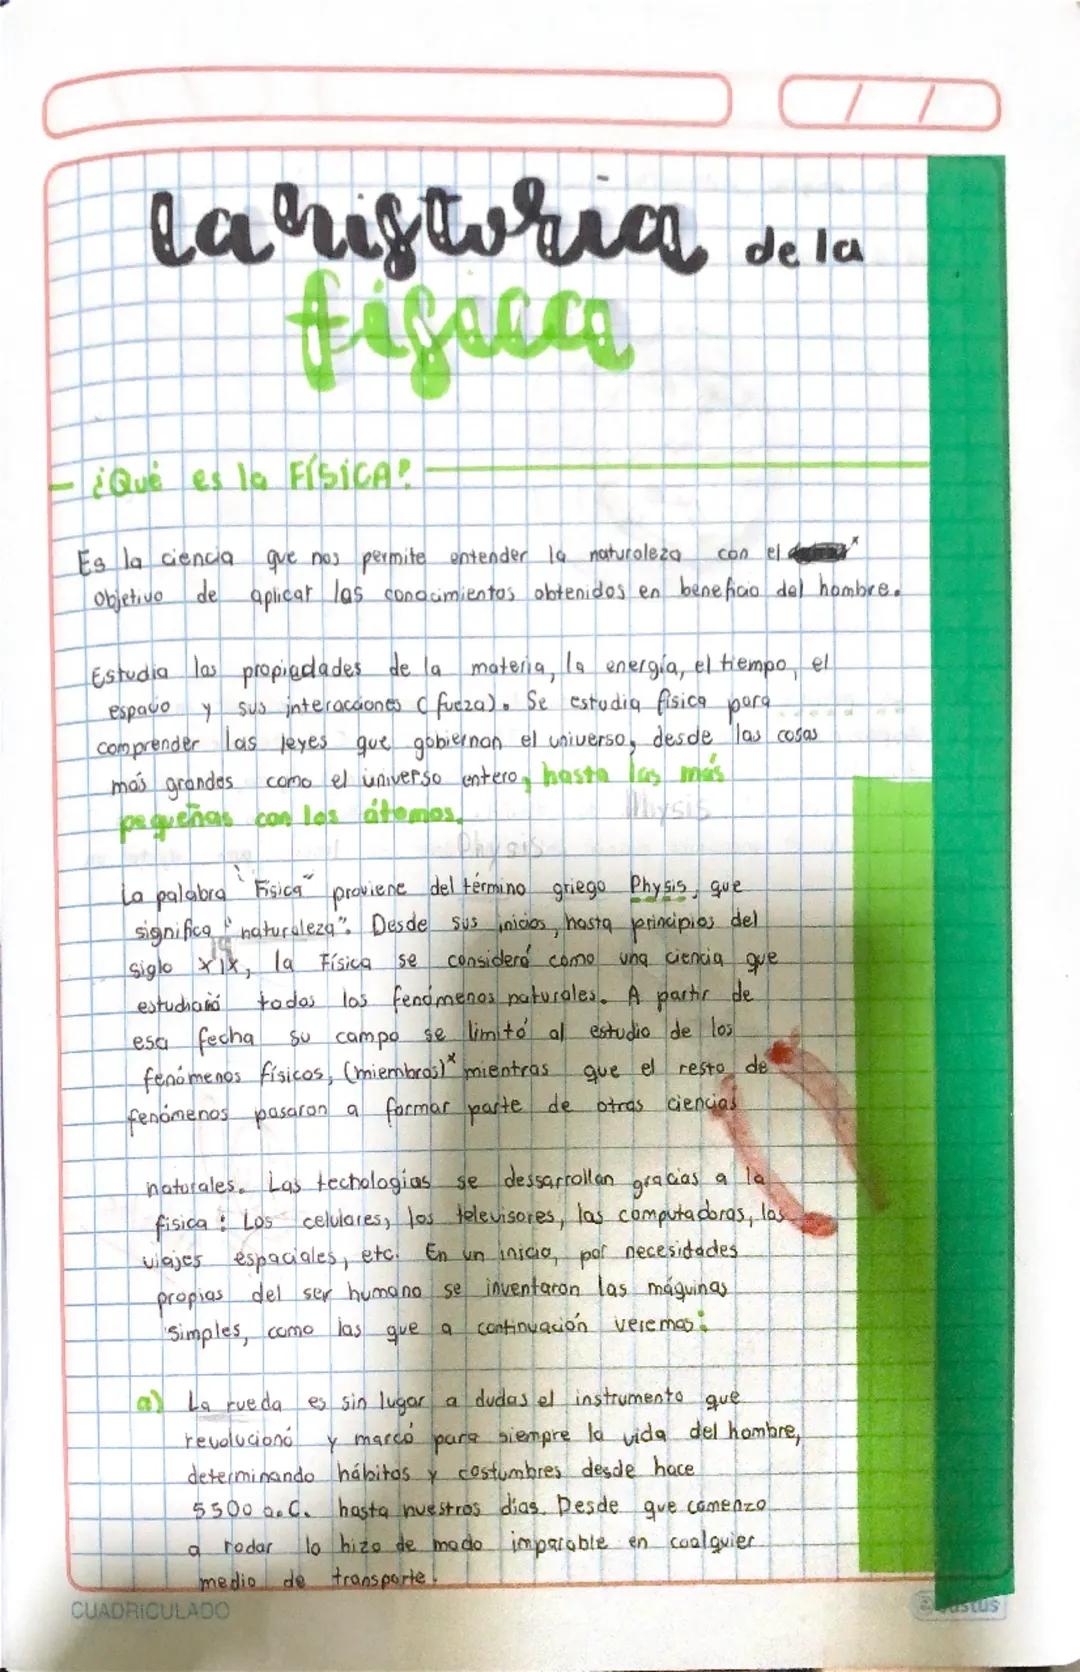 la historia de la
física
¿Qué es la FÍSICA?
Es la ciencia que nos permite entender la naturaleza con el
objetivo de aplicar los conocimientos obtenidos en beneficio del hombre.
Estudia las propiedades de la materia, la energía, el tiempo, el
espacio y sus interacciones (fueza). Se estudia física para
comprender las leyes que gobiernan el universo, desde las cosas
más grandes como el universo entero, hasta las más
pequeñas con los átomos.
La palabra "Física" proviene del término griego Physis, que
significa "naturaleza". Desde sus inicios, hasta principios del
siglo XIX, la Física se consideró como una ciencia que
estudiaría todos los fenómenos naturales. A partir de
esa fecha su campo se limitó al estudio de los
fenómenos físicos, (miembros)* mientras que el resto de
fenómenos pasaron a formar parte de otras ciencias
naturales. Las technologías se dessarrollan gracias a la
física: Los celulares, los televisores, las computadoras, los
viajes espaciales, etc. En un inicio, por necesidades
propias del ser humano se inventaron las máquinas
simples, como las que a continuación veremos:
a) La rueda es sin lugar a dudas el instrumento que
revolucionó y marcó para siempre la vida del hombre,
determinando hábitos y costumbres desde hace
5500 a.C. hasta nuestros días. Desde que comenzo
a rodar lo hizo de modo imparable en cualquier
medio de transporte.
CUADRICULADO